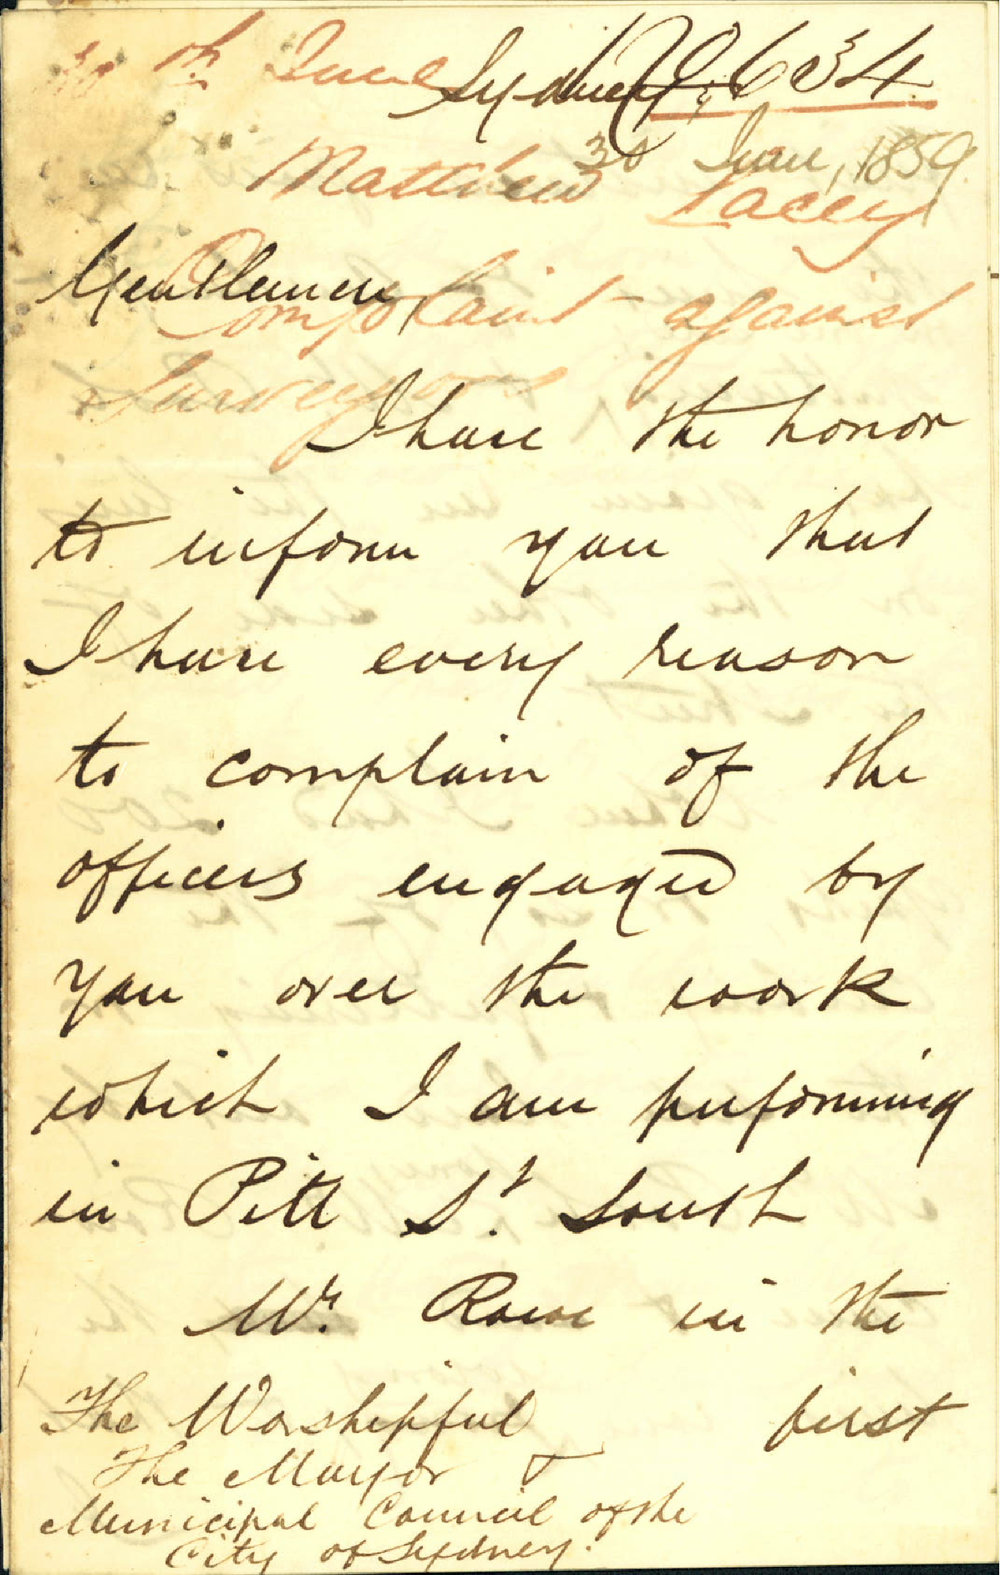 30th June
Sydney
634
30 June, 1859
Matthew Lacey
Gentlemen,
Complaint against
Surveyors
I have the honor
to inform you that
I have every reason
to complain of the
officers engaged by
you over the work
which I am performing
in Pitt St. South
Mr. Rowe in the
first
The Worshipful
The Mayor &
Municipal Council of the
City of Sydney.